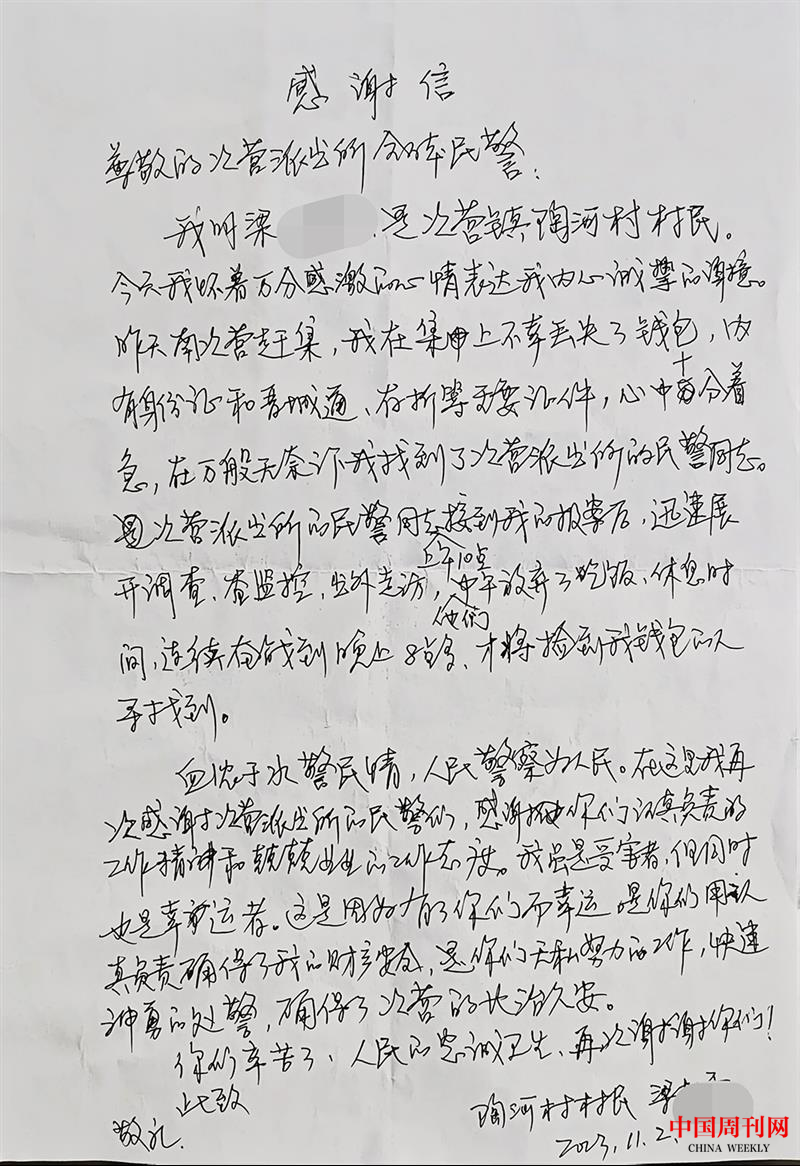 感谢信
尊敬的次营派出所全体民警:
我叫梁 是次营镇陶河村村民。
今天我怀着万分感激的心情表达我内心诚挚的谢意。
昨天南次营赶集,我在集上不幸丢失了钱包,内
有身份证和晋城通、存折等重要证件,心中十分着
急,在万般无奈下我找到了次营派出所的民警同志。
次营派出所的民警同志接到我的报案后,迅速展
开调查、查监控,出外走访,上午10点
中午放弃了吃饭、休息时
他们
间,连续奋战到晚上8点多、才将捡到我钱包的人
寻找到。
血浓于水警民情,人民警察为人民。在这里我再
次感谢次营派出所的民警们,感谢你们认真负责的
工作精神和兢兢业业的工作态度。我虽是受害者,但同时
也是幸运者。这是因为有了你们而幸运 是你们用认
真负责确保了我的财产安全,是你们无私努力的工作,快速
神勇的处警,确保了次营的长治久安。
你们辛苦了、人民的忠诚卫士、再次谢谢你们!
此致
敬礼.
陶河村村民 梁
2023.11.2
中国周刊网
CHINA WEEKLY